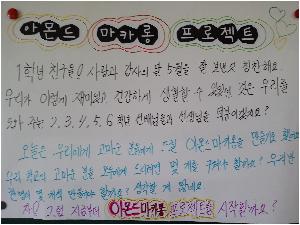 아몬드 마카롱 프로젝트
1학년 친구들은 사랑과 감사의 달 5월을 잘 보냈고 칭찬해요.
우리가 이렇게 재미있고 건강하게 생활할 수 있었던 것은 우리를
도와 주는 2, 3, 4, 5, 6 학년 선배님들과 선생님들 덕분이겠지요?
오늘은 우리에게 고마운 분들에게 드릴 아몬드마카롱을 만들기로 했어요.
우리 학교의 고마운 분들 모두에게 드리려면 몇 개를 구워야 할까요? 우리반
한명이 몇 개씩 만들어야 할까요? 생각할 게 많네요.
자, 그럼 지금부터 아몬드마카롱 프로젝트를 시작할까요?